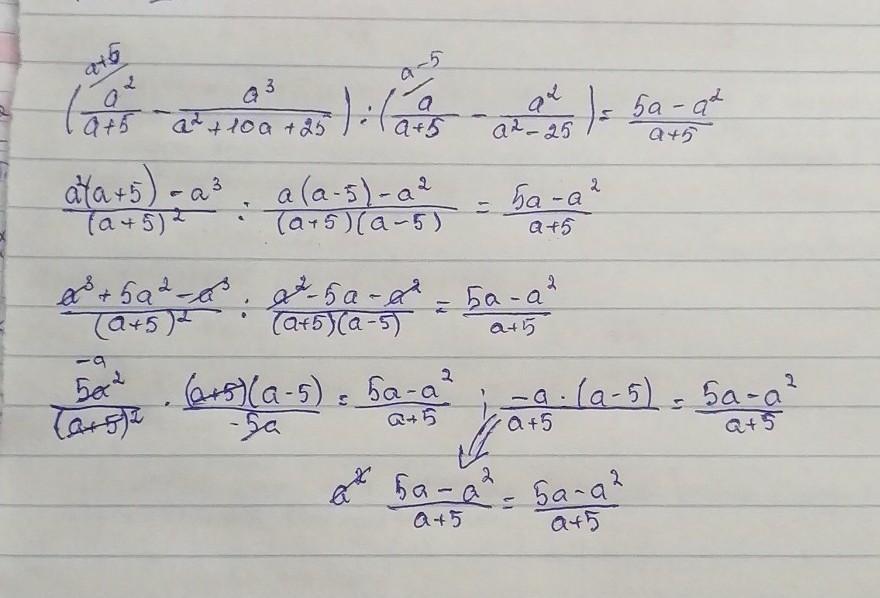 a+5 a-5
(a²/(a+5) - a³/(a²+10a+25)) : (a/(a+5) - a²/(a²-25)) = (5a-a²)/(a+5)
(a²(a+5)-a³)/(a+5)² : (a(a-5)-a²)/((a+5)(a-5)) = (5a-a²)/(a+5)
(a³+5a²-a³)/(a+5)² : (a²-5a-a²)/((a+5)(a-5)) = (5a-a²)/(a+5)
-a
5a²/(a+5)² · ((a+5)(a-5))/(-5a) = (5a-a²)/(a+5) ; (-a·(a-5))/(a+5) = (5a-a²)/(a+5)
(5a-a²)/(a+5) = (5a-a²)/(a+5)